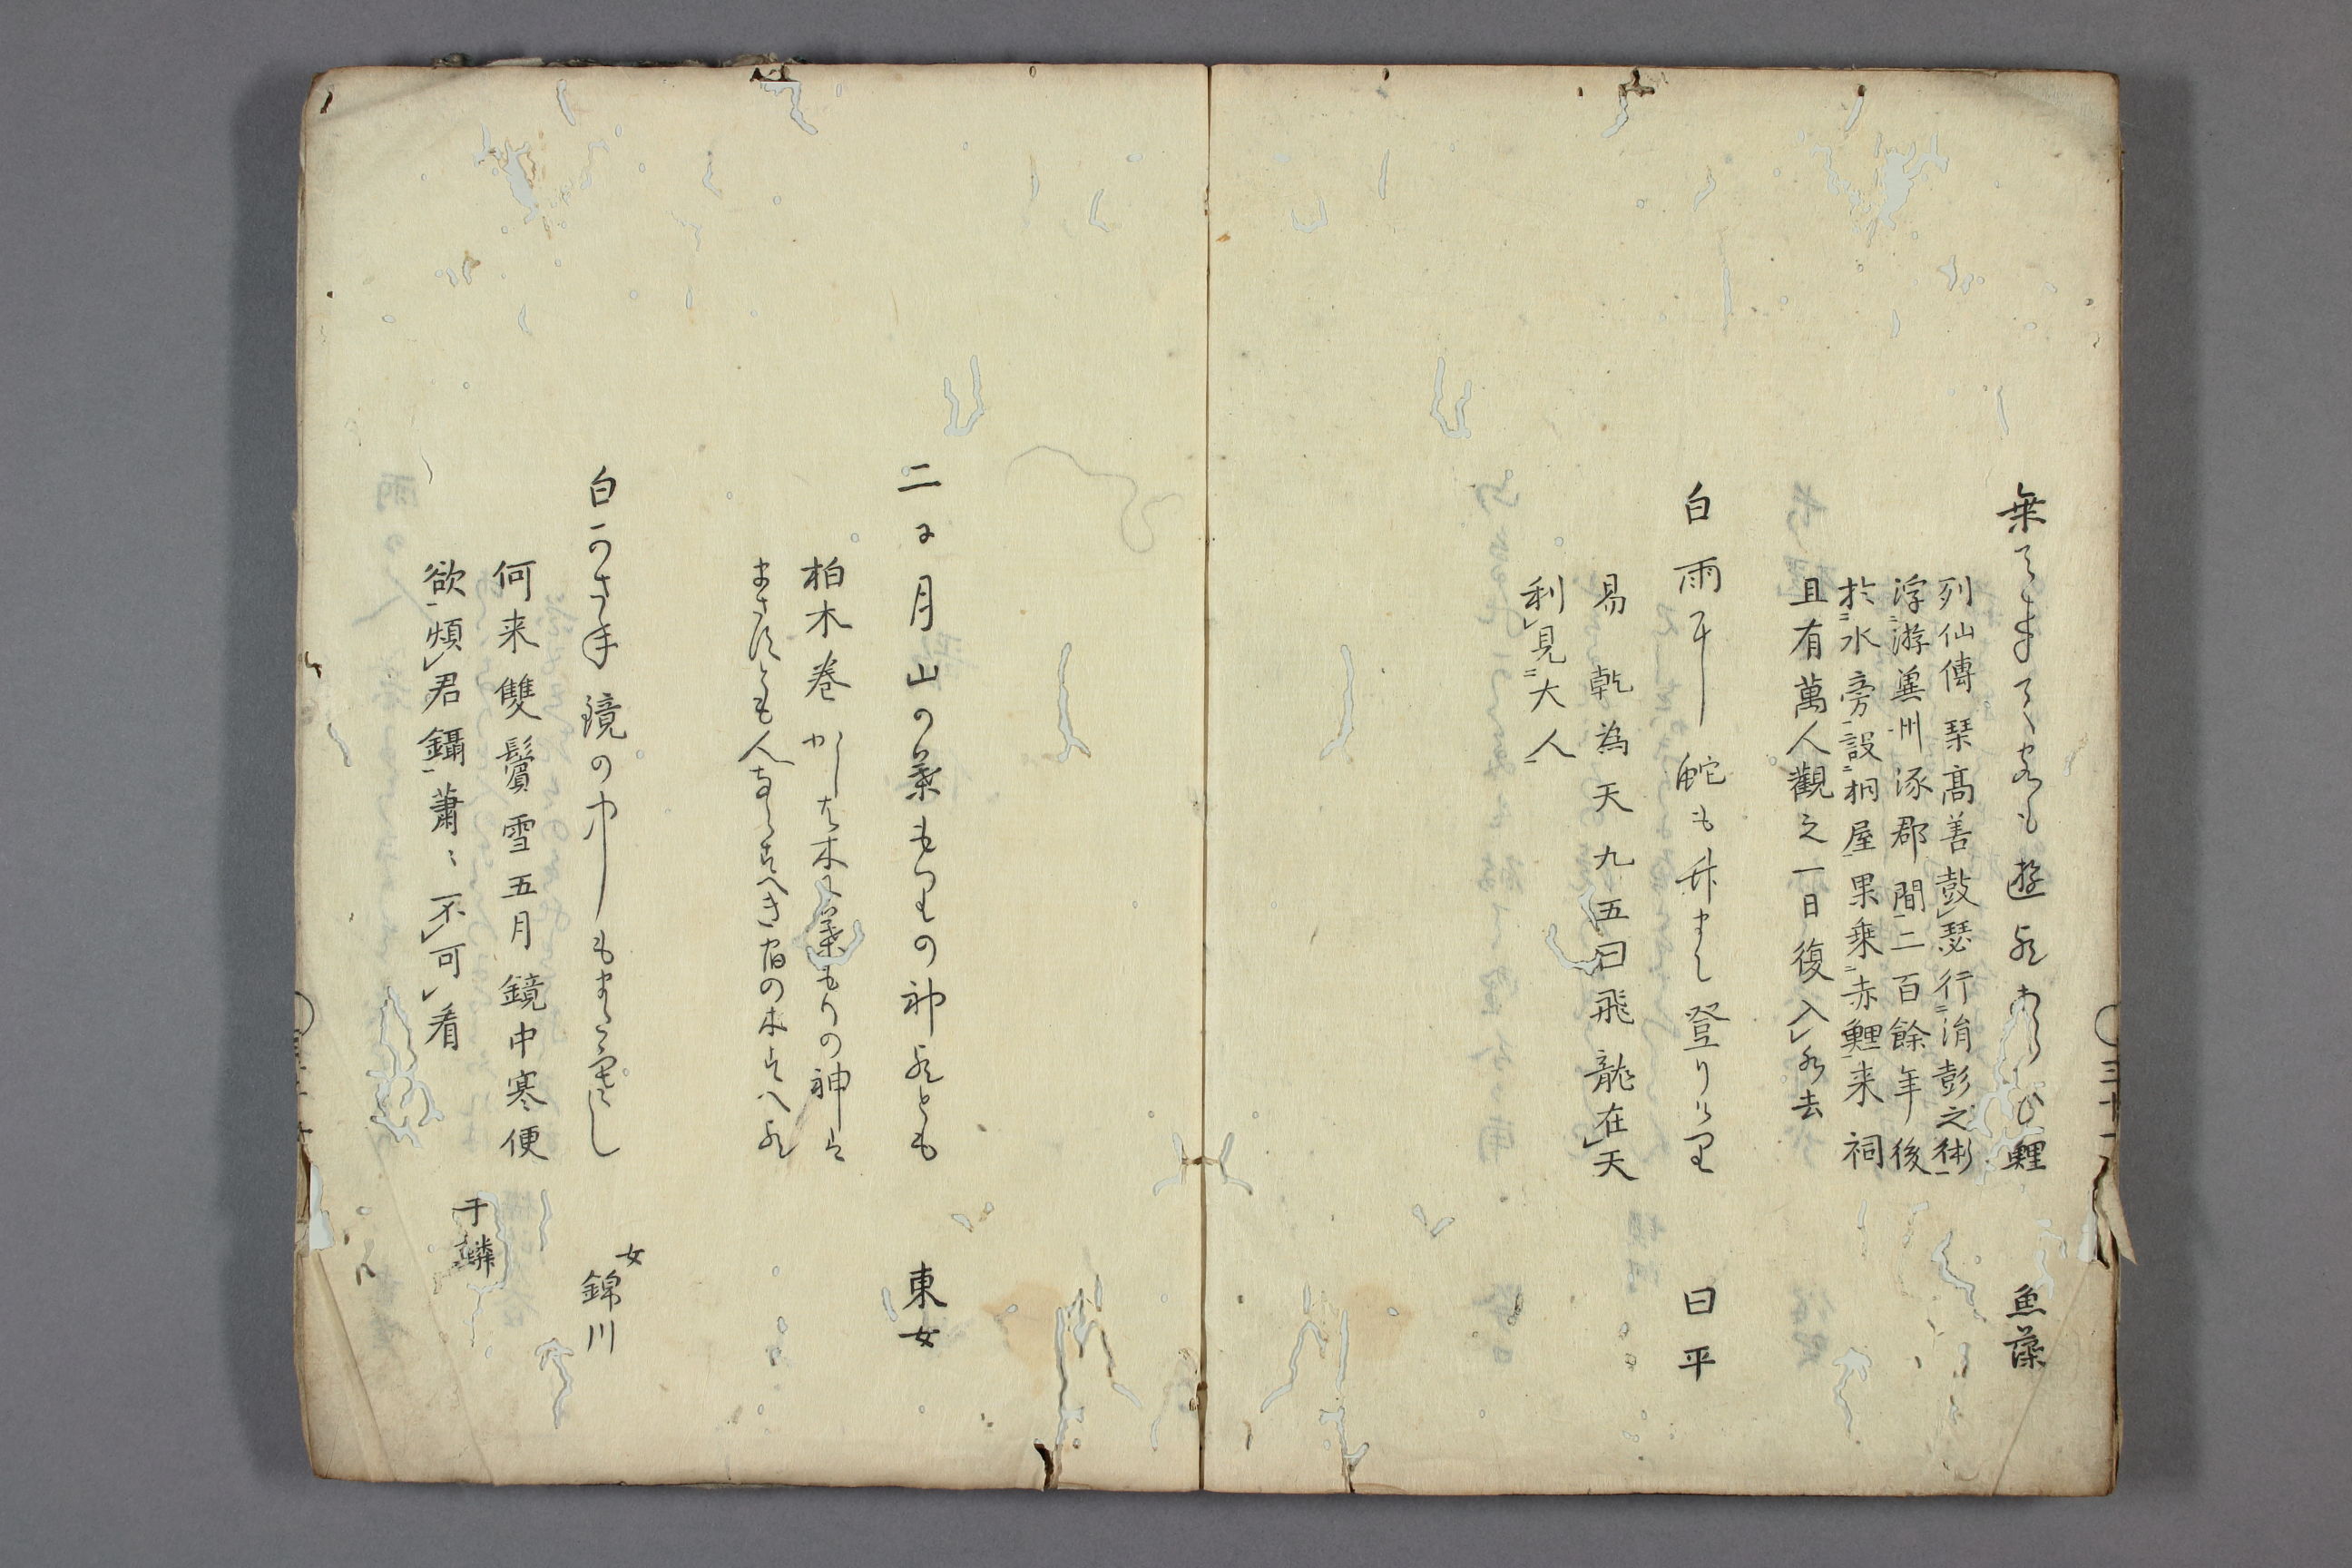 乗て 客も遊ふあらひ鯉 魚藻
列仙傳琴髙善鼓瑟行涓彭之術
浮游冀州涿郡間二百餘年後
於水旁設桐屋果乗赤鯉来祠
且有萬人觀之一日復入水去
白雨 蛇も 登りけり 日平
易 乾為天九五曰飛龍在天
利見大人
二 月山の葉もりの神 とも 東女
柏木巻 かしは木に葉もりの神は
まさすとも人ならすへき宿の木す
白 手鏡の中 も 女錦川
何来雙鬢雪五月鏡中寒便
欲煩君鑷蕭〻不可看 于鱗